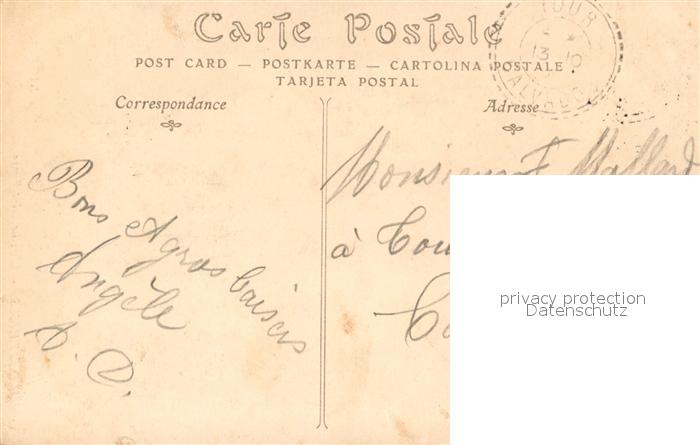 Carte Postale
POST CARD — POSTKARTE — CARTOLINA POSTALE
TARJETA POSTAL
Correspondance
Adresse
Bons et gros baisers
Angèle
A. D.
Monsieur F. Mallard
à Tou
Ca
TOUR
13 10
privacy protection
Datenschutz